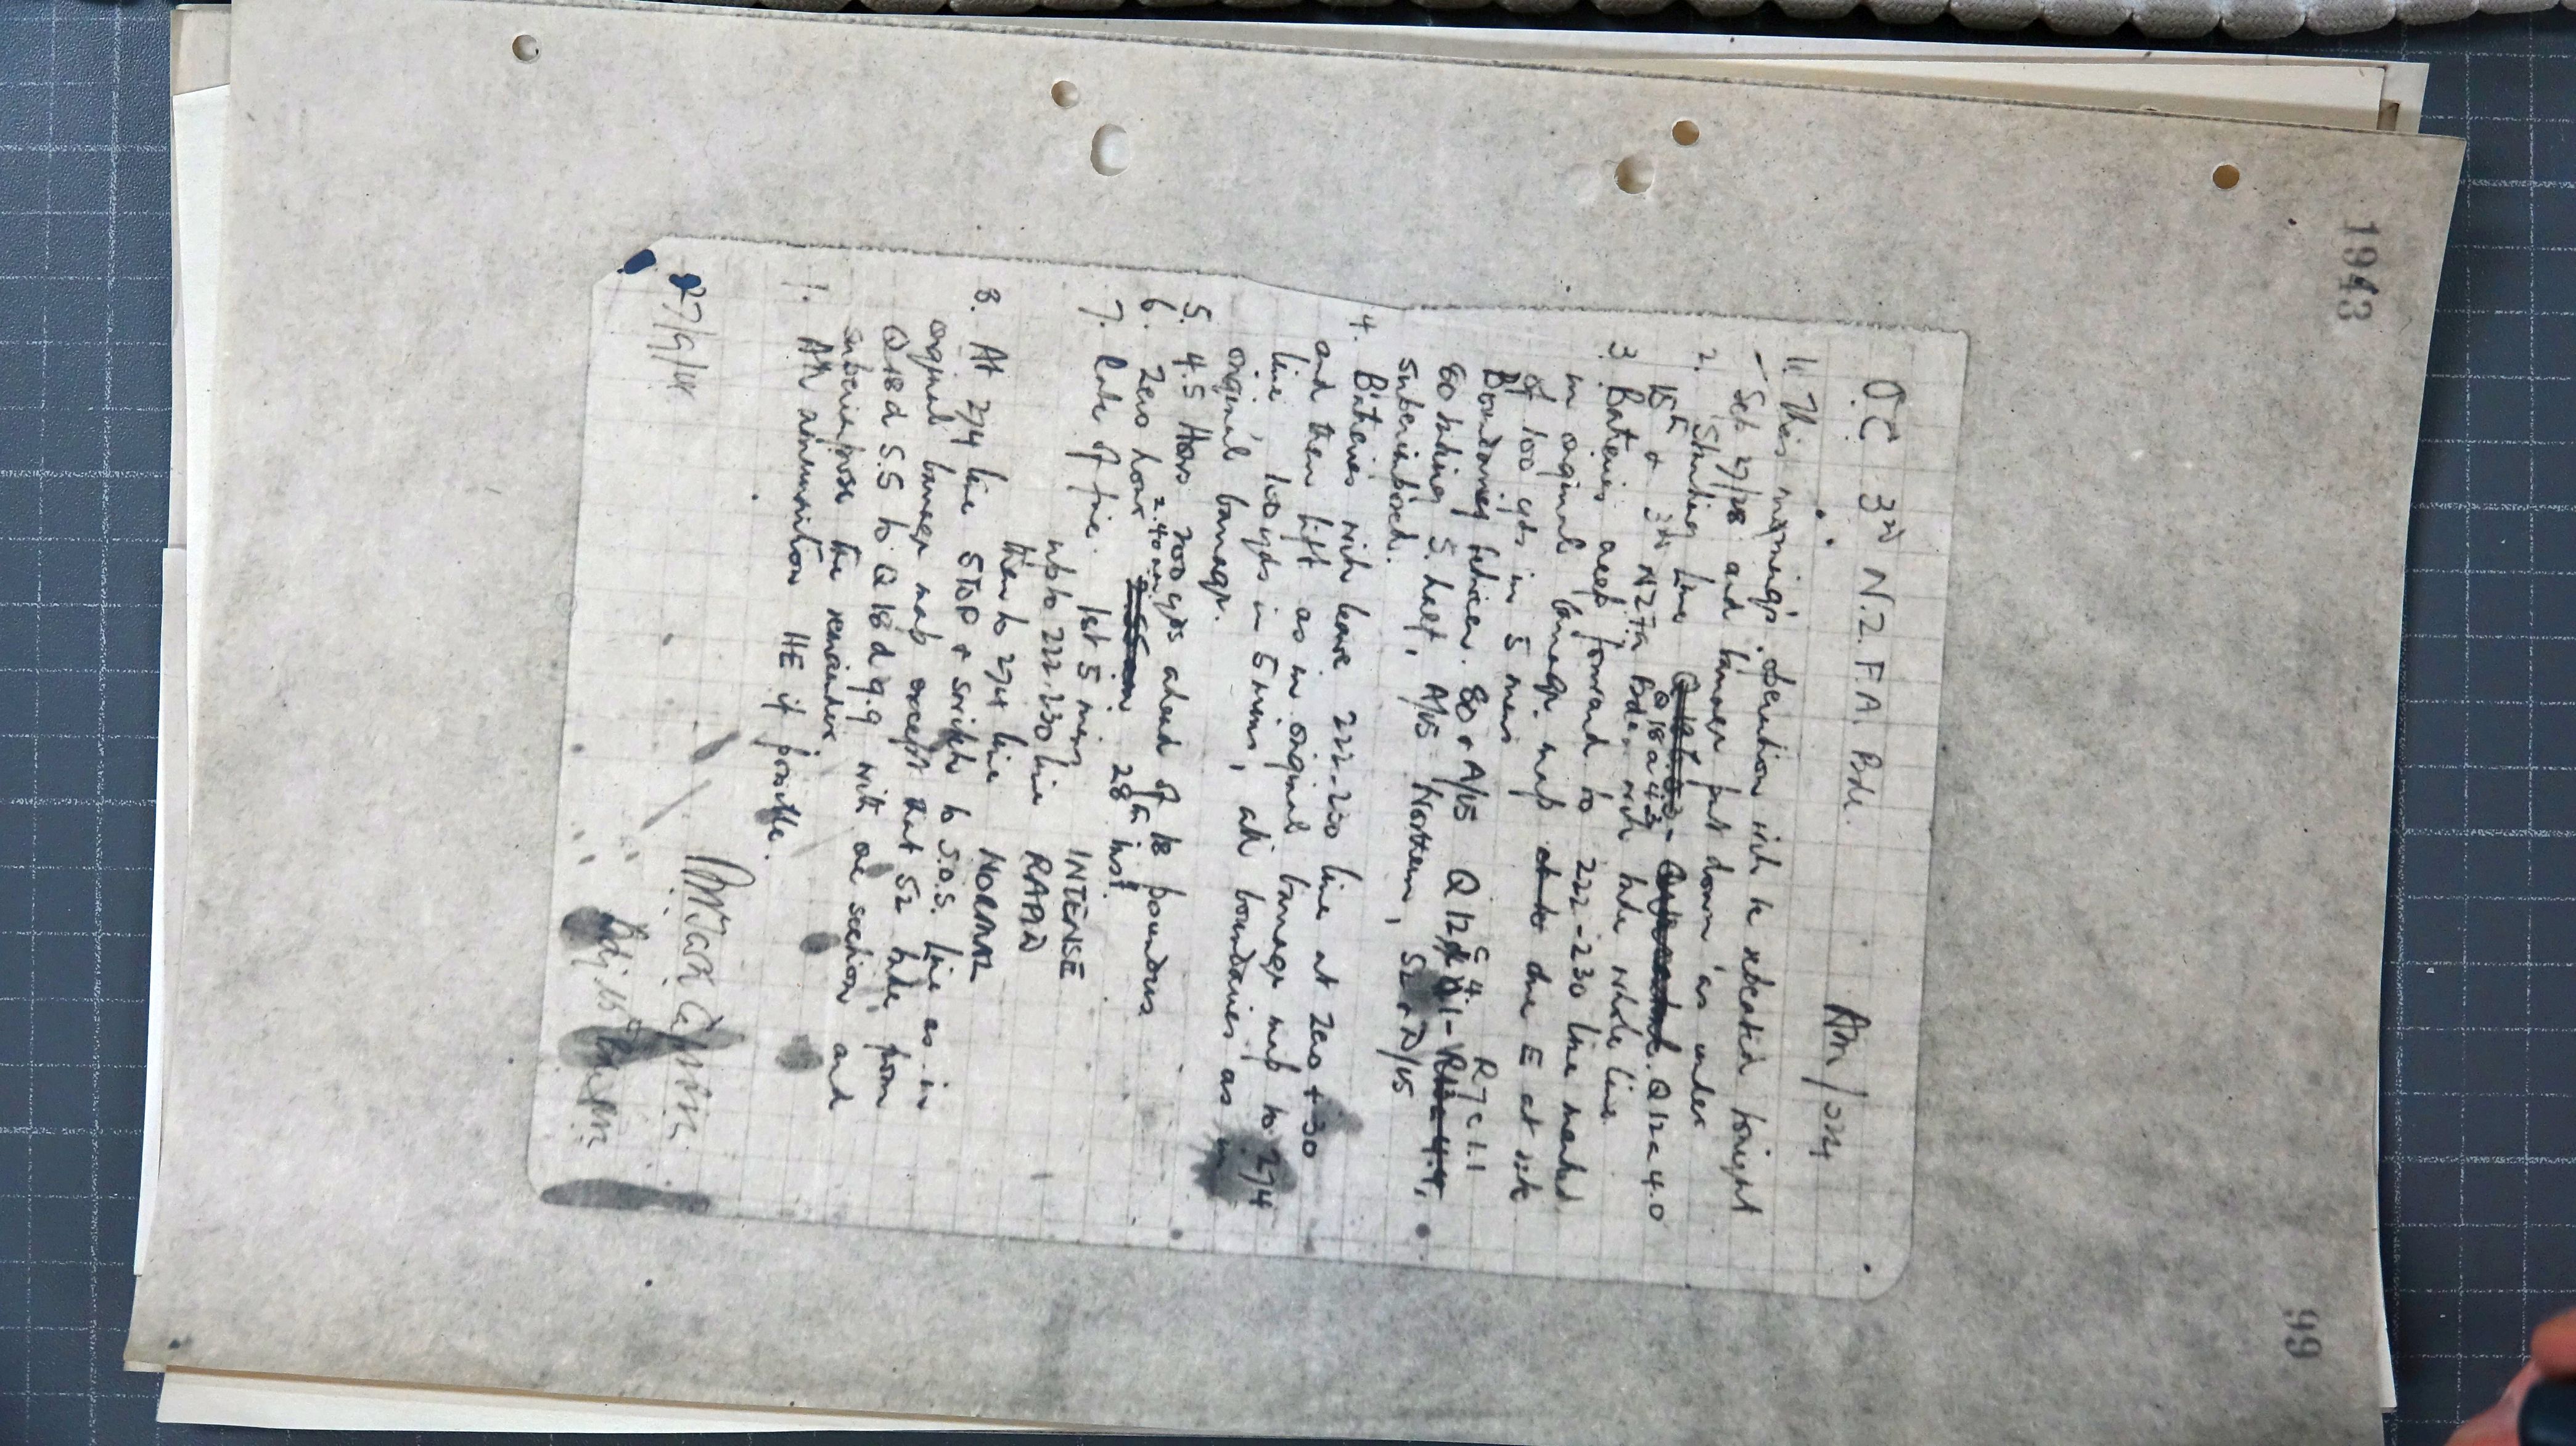 1943
99
OC 3rd N.Z.F.A. Bde. AM/024
1. This morning's operation will be repeated tonight
- Sept 27/28 and barrage put down as under
2. Starting line Q18a43 - Q12a4.0
15th & 3rd NZFA Bdes will take whole line.
3. Batteries creep forward to 222-230 line marked
on original barrage map due E at rate
of 100 yds in 5 mins
Boundaries between 80 & A/15 Q12c4.1 - R7c1.1
80 taking S. half, A/15 Northern, 52 & D/15
superimposed.
4. Batteries will leave 222-230 line at Zero + 30
and then lift as in original barrage map to 274
line 100 yds in 5 mins, all boundaries as in
original barrage.
5. 4.5 Hows 200 yds ahead of 18 pounders
6. Zero hour 2.40 am 28th inst.
7. Rate of fire. 1st 5 mins INTENSE
up to 222-230 line RAPID
then to 274 line NORMAL
8. At 274 line STOP & switch to S.O.S. line as in
original barrage map except that 52 take from
Q18d5.5 to Q18d9.9 with one section and
superimpose the remainder
1. AM ammunition HE if possible.
Captain.
27/9/18 Adj. 15